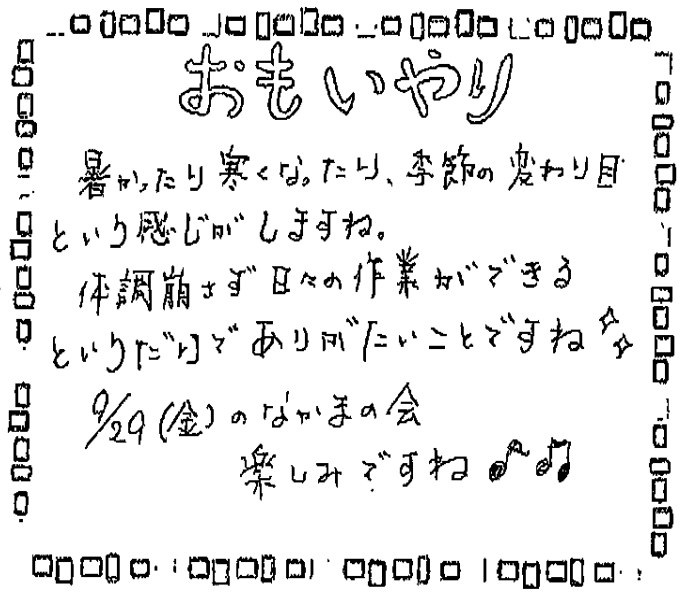 おもいやり
暑かったり寒くなったり、季節の変わり目
という感じがしますね。
体調崩さず日々の作業ができる
というだけでありがたいことですね
9/29(金)のなかまの会
楽しみですね